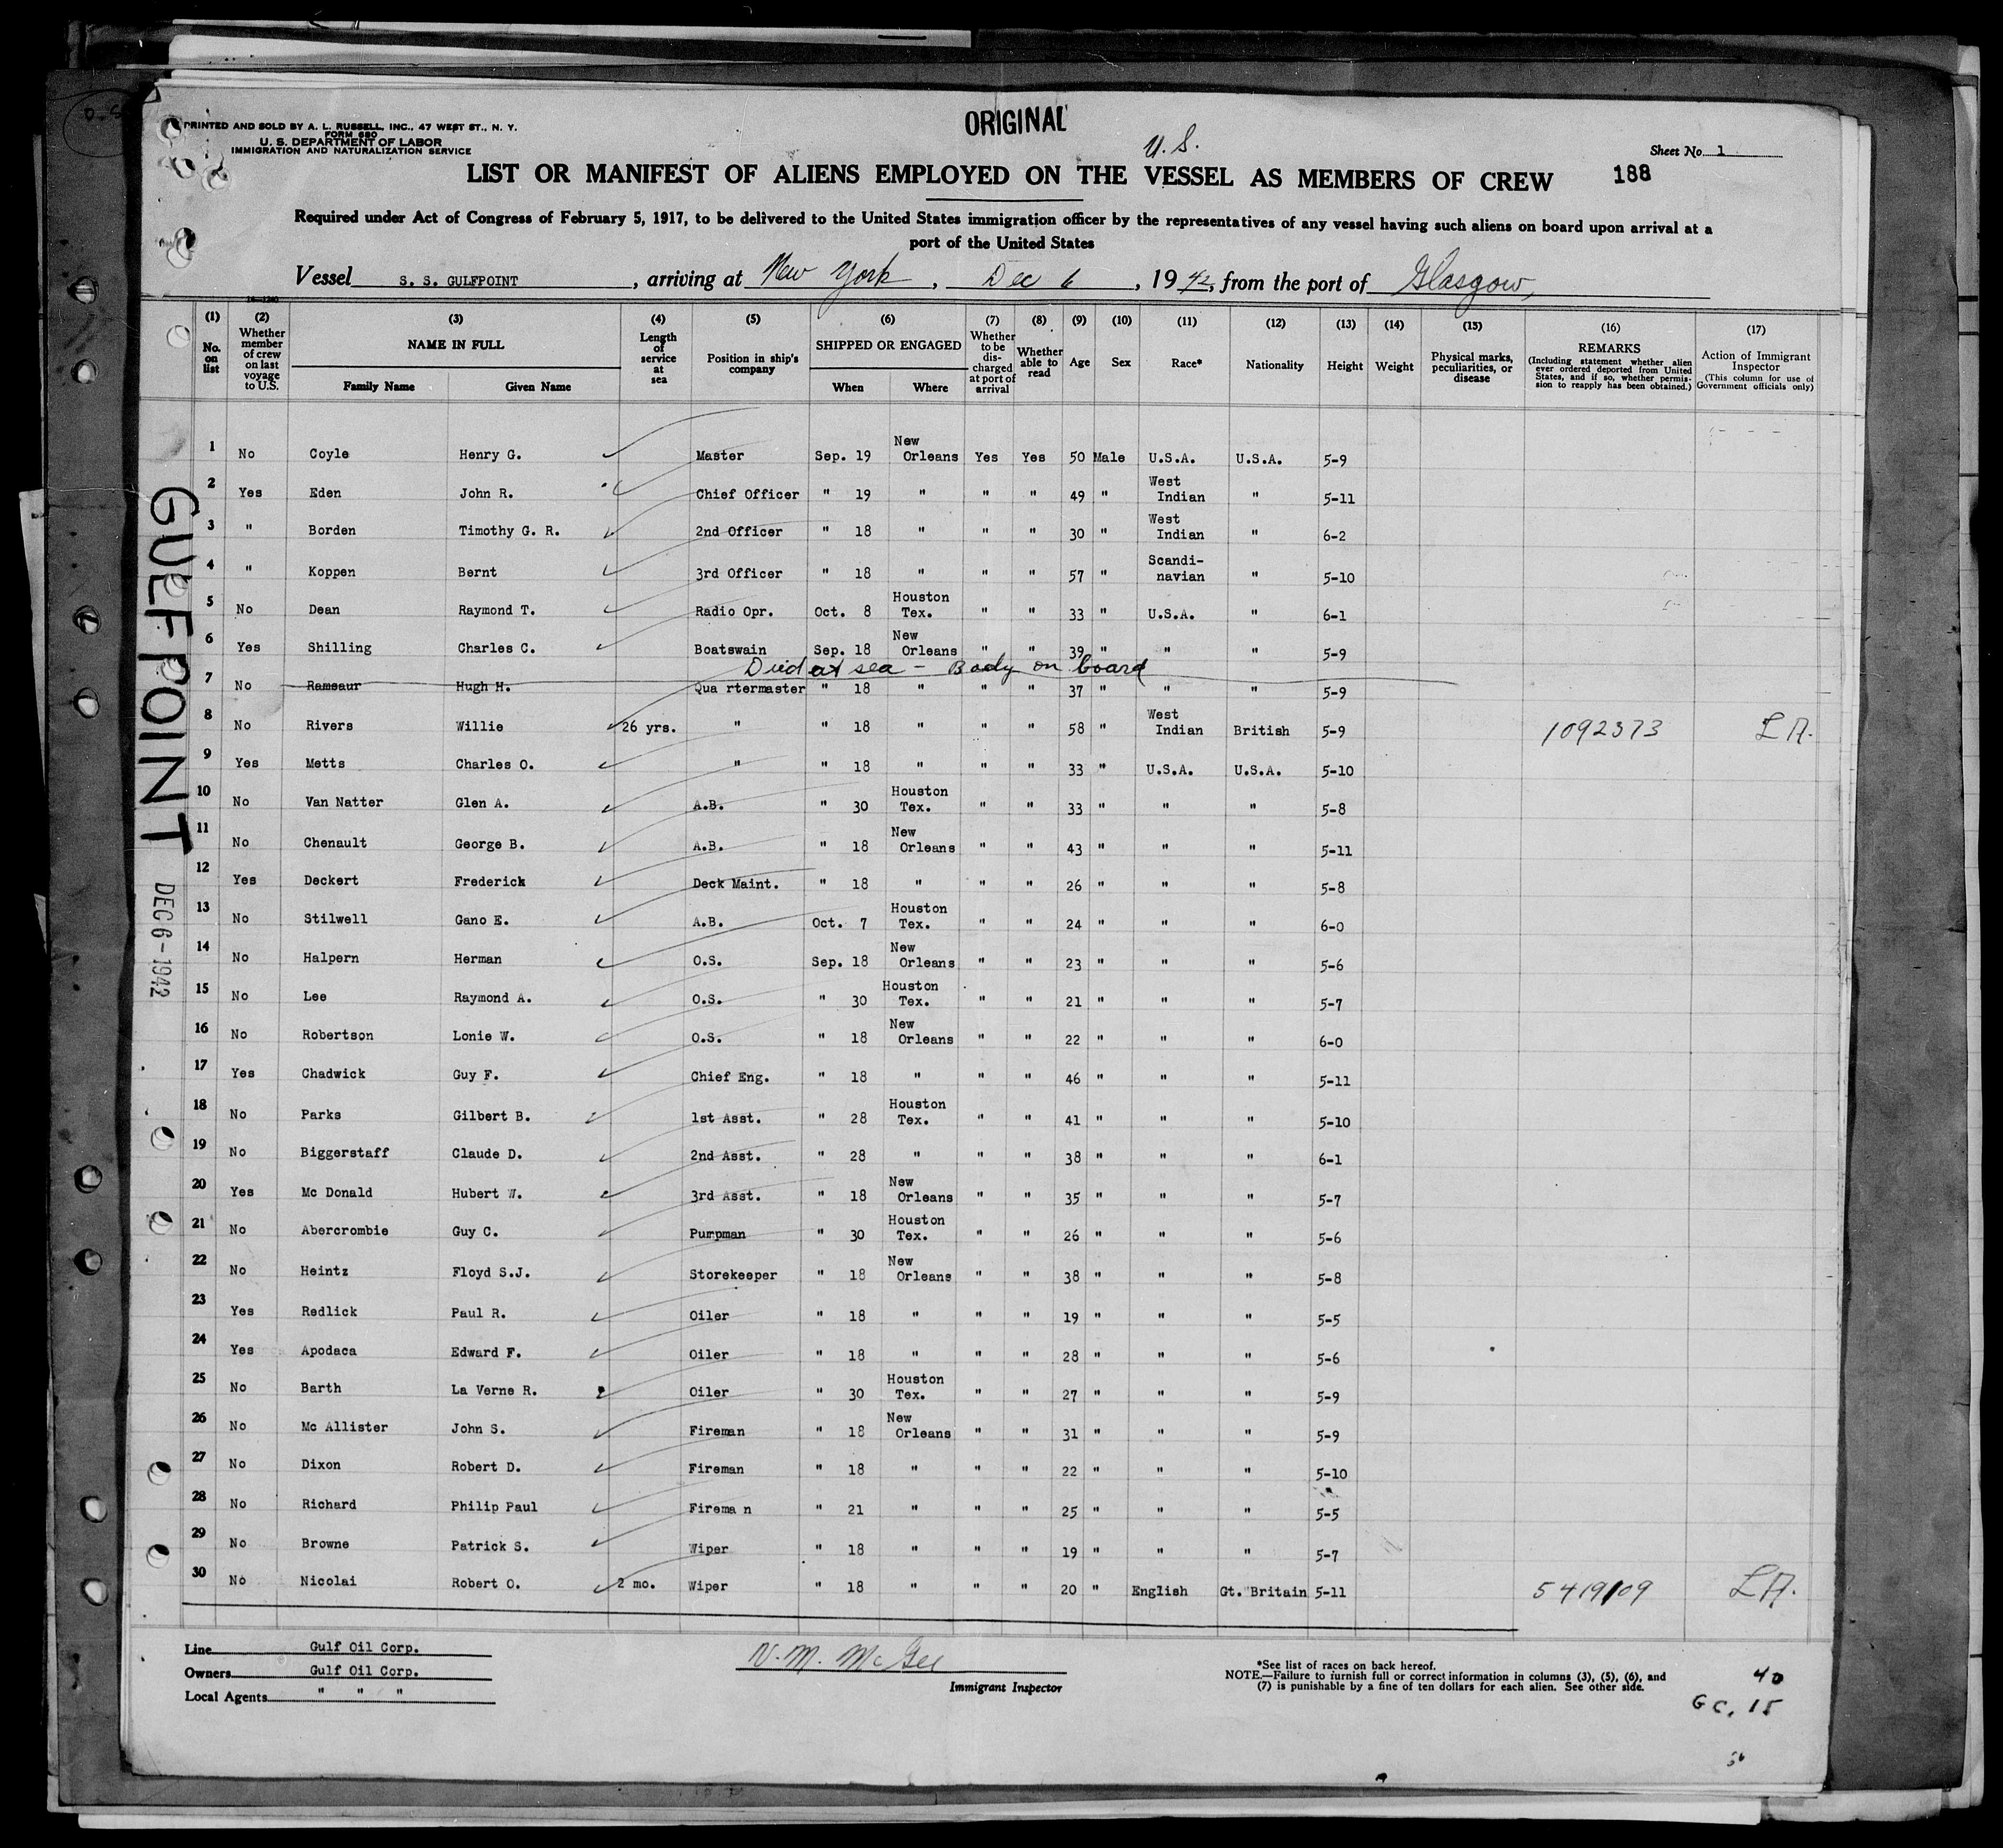 ORIGINAL
PRINTED AND SOLD BY A. L. RUSSELL, INC., 47 WEST ST., N. Y.
FORM 680
U. S. DEPARTMENT OF LABOR
IMMIGRATION AND NATURALIZATION SERVICE
U.S.
Sheet No. 1
LIST OR MANIFEST OF ALIENS EMPLOYED ON THE VESSEL AS MEMBERS OF CREW
188
Required under Act of Congress of February 5, 1917, to be delivered to the United States immigration officer by the representatives of any vessel having such aliens on board upon arrival at a
port of the United States
Vessel S. S. GULFPOINT, arriving at New York, Dec 6, 1942, from the port of Glasgow,
(1) No. on list (2) Whether member of crew on last voyage to U.S. (3) NAME IN FULL Family Name Given Name (4) Length of service at sea (5) Position in ship's company (6) SHIPPED OR ENGAGED When Where (7) Whether to be discharged at port of arrival (8) Whether able to read (9) Age (10) Sex (11) Race* (12) Nationality (13) Height (14) Weight (15) Physical marks, peculiarities, or disease (16) REMARKS (Including statement whether alien ever ordered deported from United States, and if so, whether permission to reapply has been obtained.) (17) Action of Immigrant Inspector (This column for use of Government officials only)
1 No Coyle Henry G. Master Sep. 19 New Orleans Yes Yes 50 Male U.S.A. U.S.A. 5-9
2 Yes Eden John R. Chief Officer " 19 " " " 49 " West Indian " 5-11
3 " Borden Timothy G. R. 2nd Officer " 18 " " " 30 " West Indian " 6-2
4 " Koppen Bernt 3rd Officer " 18 " " " 57 " Scandi-navian " 5-10
5 No Dean Raymond T. Radio Opr. Oct. 8 Houston Tex. " " 33 " U.S.A. " 6-1
6 Yes Shilling Charles C. Boatswain Sep. 18 New Orleans " " 39 " " " 5-9
Died at sea - Body on board
7 No Ramsaur Hugh H. Qua rtermaster " 18 " " " 37 " " " 5-9
8 No Rivers Willie 26 yrs. " " 18 " " " 58 " West Indian British 5-9 1092373 L A.
9 Yes Metts Charles O. " " 18 " " " 33 " U.S.A. U.S.A. 5-10
10 No Van Natter Glen A. A.B. " 30 Houston Tex. " " 33 " " " 5-8
11 No Chenault George B. A.B. " 18 New Orleans " " 43 " " " 5-11
12 Yes Deckert Frederick Deck Maint. " 18 " " " 26 " " " 5-8
13 No Stilwell Gano E. A.B. Oct. 7 Houston Tex. " " 24 " " " 6-0
14 No Halpern Herman O.S. Sep. 18 New Orleans " " 23 " " " 5-6
15 No Lee Raymond A. O.S. " 30 Houston Tex. " " 21 " " " 5-7
16 No Robertson Lonie W. O.S. " 18 New Orleans " " 22 " " " 6-0
17 Yes Chadwick Guy F. Chief Eng. " 18 " " " 46 " " " 5-11
18 No Parks Gilbert B. 1st Asst. " 28 Houston Tex. " " 41 " " " 5-10
19 No Biggerstaff Claude D. 2nd Asst. " 28 " " " 38 " " " 6-1
20 Yes Mc Donald Hubert W. 3rd Asst. " 18 New Orleans " " 35 " " " 5-7
21 No Abercrombie Guy C. Pumpman " 30 Houston Tex. " " 26 " " " 5-6
22 No Heintz Floyd S.J. Storekeeper " 18 New Orleans " " 38 " " " 5-8
23 Yes Redlick Paul R. Oiler " 18 " " " 19 " " " 5-5
24 Yes Apodaca Edward F. Oiler " 18 " " " 28 " " " 5-6
25 No Barth La Verne R. Oiler " 30 Houston Tex. " " 27 " " " 5-9
26 No Mc Allister John S. Fireman " 18 New Orleans " " 31 " " " 5-9
27 No Dixon Robert D. Fireman " 18 " " " 22 " " " 5-10
28 No Richard Philip Paul Firema n " 21 " " " 25 " " " 5-5
29 No Browne Patrick S. Wiper " 18 " " " 19 " " " 5-7
30 No Nicolai Robert O. 2 mo. Wiper " 18 " " " 20 " English Gt. Britain 5-11 5419109 L A.
GULFPOINT
DEC 6-1942
Line Gulf Oil Corp.
Owners Gulf Oil Corp.
Local Agents " " "
V. M. McGee
Immigrant Inspector
*See list of races on back hereof.
NOTE.—Failure to furnish full or correct information in columns (3), (5), (6), and
(7) is punishable by a fine of ten dollars for each alien. See other side.
40
GC. 15